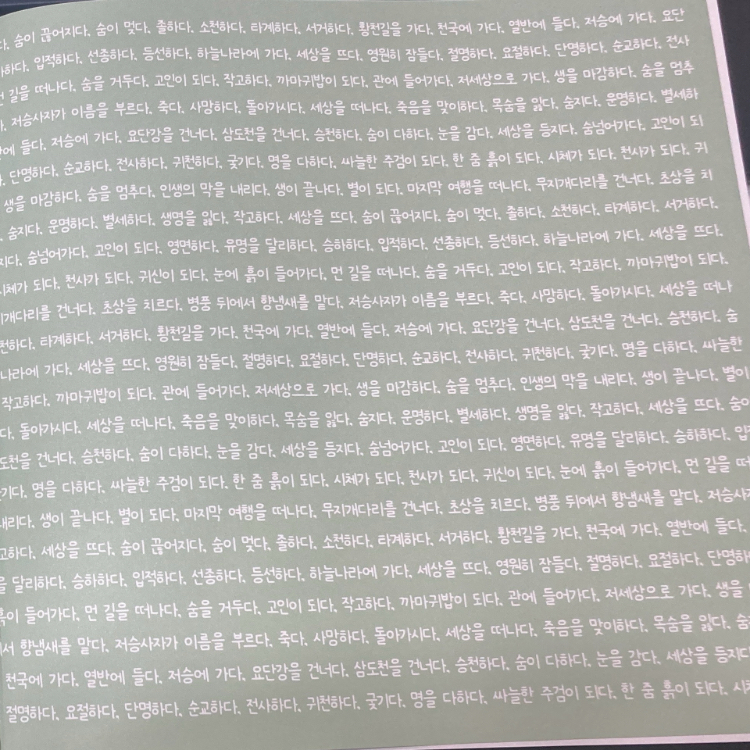 다. 숨이 끊어지다. 숨이 멎다. 졸하다. 소천하다. 타계하다. 서거하다. 황천길을 가다. 천국에 가다. 열반에 들다. 저승에 가다. 요단
하다. 입적하다. 선종하다. 등선하다. 하늘나라에 가다. 세상을 뜨다. 영원히 잠들다. 절명하다. 요절하다. 단명하다. 순교하다. 전사
먼 길을 떠나다. 숨을 거두다. 고인이 되다. 작고하다. 까마귀밥이 되다. 관에 들어가다. 저세상으로 가다. 생을 마감하다. 숨을 멈추
다. 저승사자가 이름을 부르다. 죽다. 사망하다. 돌아가시다. 세상을 떠나다. 죽음을 맞이하다. 목숨을 잃다. 숨지다. 운명하다. 별세하
에 들다. 저승에 가다. 요단강을 건너다. 삼도천을 건너다. 승천하다. 숨이 다하다. 눈을 감다. 세상을 등지다. 숨넘어가다. 고인이 되
다. 단명하다. 순교하다. 전사하다. 귀천하다. 궂기다. 명을 다하다. 싸늘한 주검이 되다. 한 줌 흙이 되다. 시체가 되다. 천사가 되다. 귀
생을 마감하다. 숨을 멈추다. 인생의 막을 내리다. 생이 끝나다. 별이 되다. 마지막 여행을 떠나다. 무지개다리를 건너다. 초상을 치
. 숨지다. 운명하다. 별세하다. 생명을 잃다. 작고하다. 세상을 뜨다. 숨이 끊어지다. 숨이 멎다. 졸하다. 소천하다. 타계하다. 서거하다.
지다. 숨넘어가다. 고인이 되다. 영면하다. 유명을 달리하다. 승하하다. 입적하다. 선종하다. 등선하다. 하늘나라에 가다. 세상을 뜨다.
시체가 되다. 천사가 되다. 귀신이 되다. 눈에 흙이 들어가다. 먼 길을 떠나다. 숨을 거두다. 고인이 되다. 작고하다. 까마귀밥이 되다.
지개다리를 건너다. 초상을 치르다. 병풍 뒤에서 향냄새를 맡다. 저승사자가 이름을 부르다. 죽다. 사망하다. 돌아가시다. 세상을 떠나
천하다. 타계하다. 서거하다. 황천길을 가다. 천국에 가다. 열반에 들다. 저승에 가다. 요단강을 건너다. 삼도천을 건너다. 승천하다. 숨
나라에 가다. 세상을 뜨다. 영원히 잠들다. 절명하다. 요절하다. 단명하다. 순교하다. 전사하다. 귀천하다. 궂기다. 명을 다하다. 싸늘한
작고하다. 까마귀밥이 되다. 관에 들어가다. 저세상으로 가다. 생을 마감하다. 숨을 멈추다. 인생의 막을 내리다. 생이 끝나다. 별이
다. 돌아가시다. 세상을 떠나다. 죽음을 맞이하다. 목숨을 잃다. 숨지다. 운명하다. 별세하다. 생명을 잃다. 작고하다. 세상을 뜨다. 숨이
도천을 건너다. 승천하다. 숨이 다하다. 눈을 감다. 세상을 등지다. 숨넘어가다. 고인이 되다. 영면하다. 유명을 달리하다. 승하하다. 입
기다. 명을 다하다. 싸늘한 주검이 되다. 한 줌 흙이 되다. 시체가 되다. 천사가 되다. 귀신이 되다. 눈에 흙이 들어가다. 먼 길을 떠
내리다. 생이 끝나다. 별이 되다. 마지막 여행을 떠나다. 무지개다리를 건너다. 초상을 치르다. 병풍 뒤에서 향냄새를 맡다. 저승사
고하다. 세상을 뜨다. 숨이 끊어지다. 숨이 멎다. 졸하다. 소천하다. 타계하다. 서거하다. 황천길을 가다. 천국에 가다. 열반에 들다.
을 달리하다. 승하하다. 입적하다. 선종하다. 등선하다. 하늘나라에 가다. 세상을 뜨다. 영원히 잠들다. 절명하다. 요절하다. 단명하
흙이 들어가다. 먼 길을 떠나다. 숨을 거두다. 고인이 되다. 작고하다. 까마귀밥이 되다. 관에 들어가다. 저세상으로 가다. 생을
서 향냄새를 맡다. 저승사자가 이름을 부르다. 죽다. 사망하다. 돌아가시다. 세상을 떠나다. 죽음을 맞이하다. 목숨을 잃다. 숨
천국에 가다. 열반에 들다. 저승에 가다. 요단강을 건너다. 삼도천을 건너다. 승천하다. 숨이 다하다. 눈을 감다. 세상을 등지다
절명하다. 요절하다. 단명하다. 순교하다. 전사하다. 귀천하다. 궂기다. 명을 다하다. 싸늘한 주검이 되다. 한 줌 흙이 되다. 시체